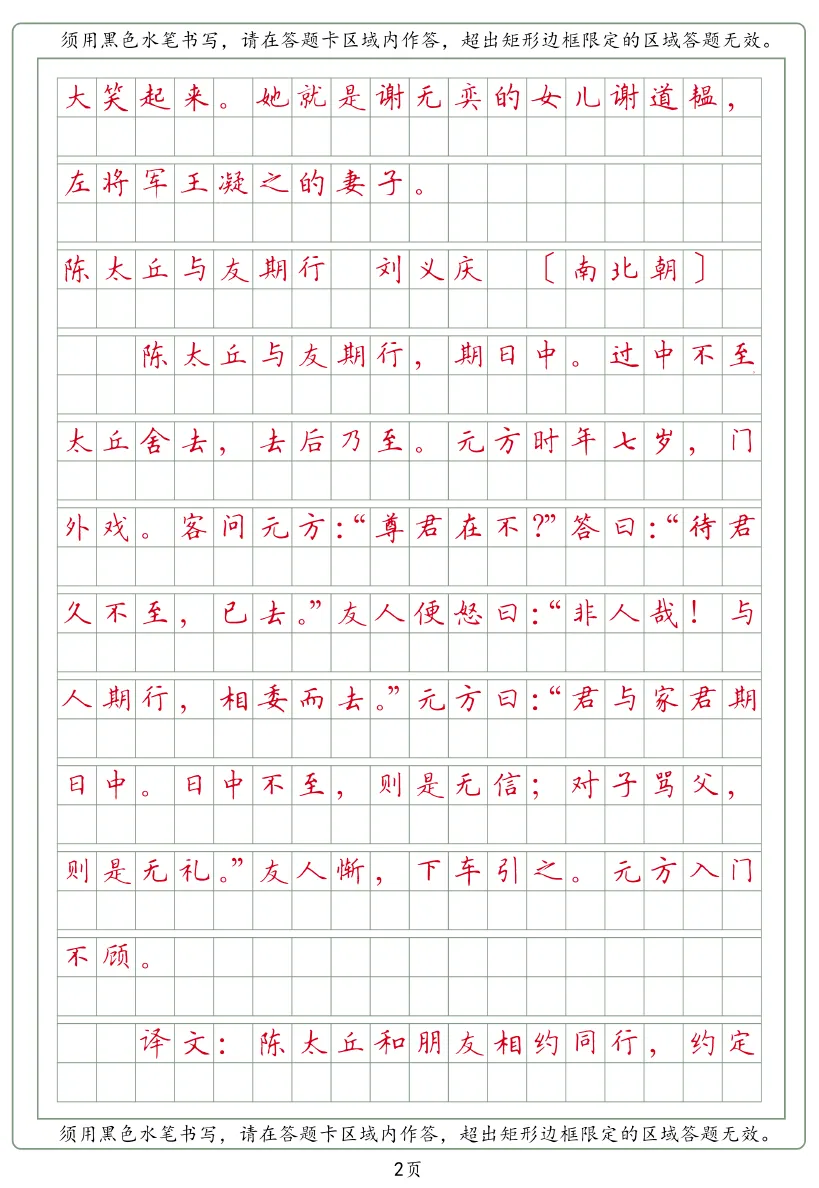 须用黑色水笔书写，请在答题卡区域内作答，超出矩形边框限定的区域答题无效。
大笑起来。她就是谢无奕的女儿谢道韫，
左将军王凝之的妻子。
陈太丘与友期行 刘义庆 〔南北朝〕
陈太丘与友期行，期日中。过中不至
太丘舍去，去后乃至。元方时年七岁，门
外戏。客问元方：“尊君在不？”答曰：“待君
久不至，已去。”友人便怒曰：“非人哉！与
人期行，相委而去。”元方曰：“君与家君期
日中。日中不至，则是无信；对子骂父，
则是无礼。”友人惭，下车引之。元方入门
不顾。
译文：陈太丘和朋友相约同行，约定
须用黑色水笔书写，请在答题卡区域内作答，超出矩形边框限定的区域答题无效。
2页